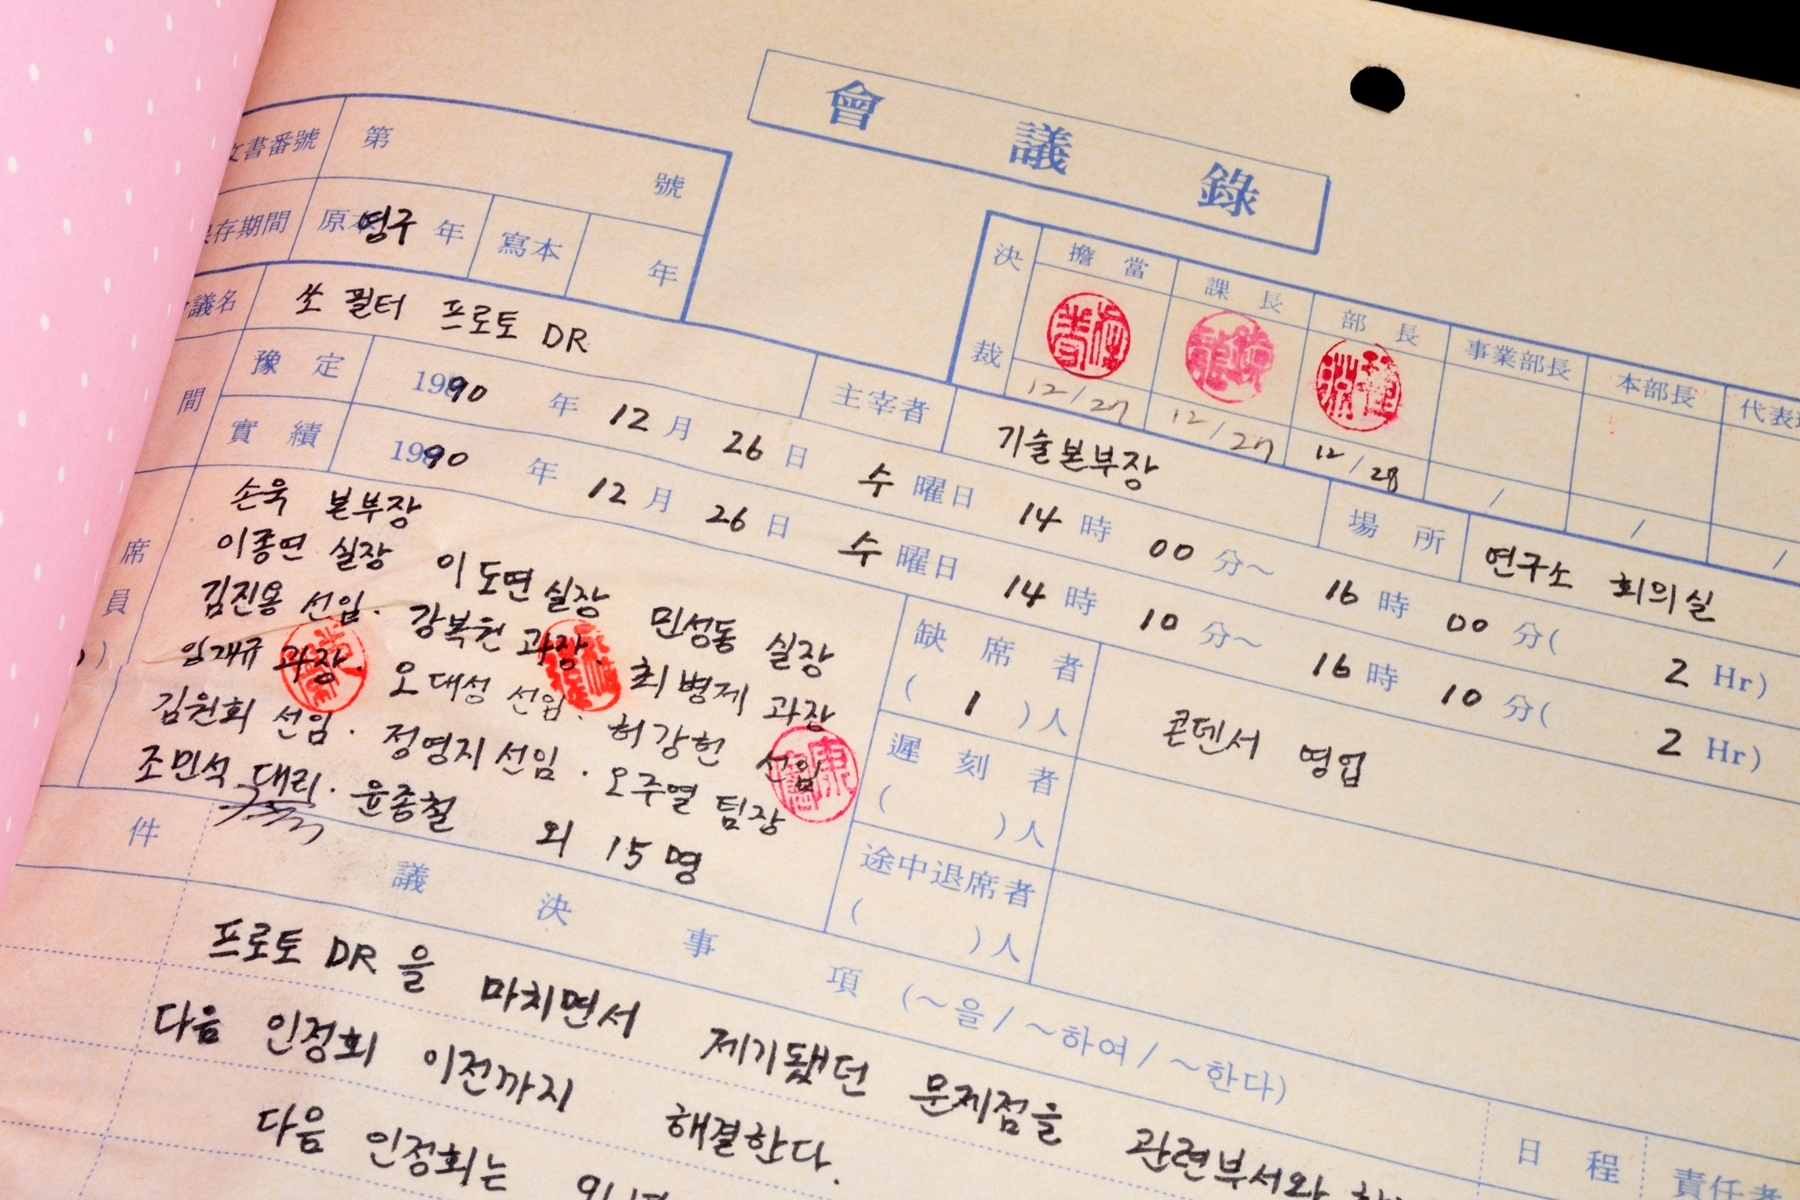 會議錄
文書番號 第 號
存期間 原本 영구 年 寫本 年
議名 쏘 필터 프로토 DR
決裁 擔當 課長 部長 事業部長 本部長 代表
12/27 12/27 12/28 / / /
間 豫定 1990 年 12 月 26 日 수 曜日 14 時 00 分~ 16 時 00 分( 2 Hr)
主宰者 기술본부장
場所 연구소 회의실
實績 1990 年 12 月 26 日 수 曜日 14 時 10 分~ 16 時 10 分( 2 Hr)
席員
손욱 본부장
이종연 실장 이도면 실장 민성동 실장
김진용 선임. 강복현 과장. 최병제 과장
임재규 과장. 오대성 선임. 허강헌 선임
김원회 선임. 정영지 선임. 오주열 팀장
조민석 대리. 윤종철 외 15명
缺席者 ( 1 )人 콘덴서 영업
遲刻者 ( )人
途中退席者 ( )人
件 議決事項 (~을/~하여/~한다) 日程 責任者
프로토 DR을 마치면서 제기됐던 문제점을 관련부서와
다음 인정회 이전까지 해결한다.
다음 인정회는